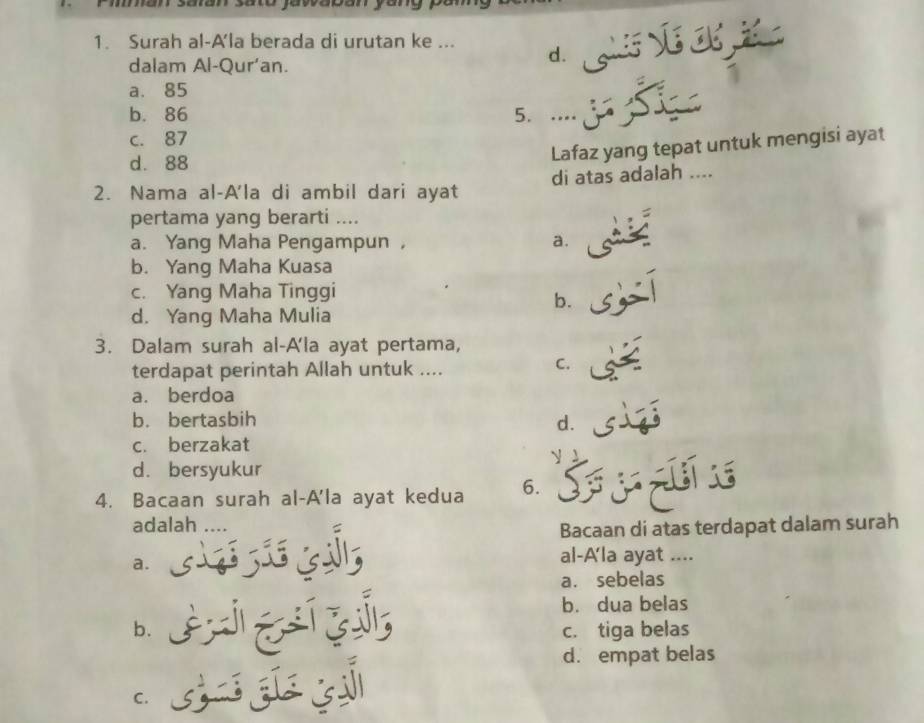 1. Surah al-A'la berada di urutan ke ...
dalam Al-Qur'an.
a. 85
b. 86
c. 87
d. 88
2. Nama al-A'la di ambil dari ayat
pertama yang berarti ....
a. Yang Maha Pengampun
b. Yang Maha Kuasa
c. Yang Maha Tinggi
d. Yang Maha Mulia
3. Dalam surah al-A'la ayat pertama,
terdapat perintah Allah untuk ....
a. berdoa
b. bertasbih
c. berzakat
d. bersyukur
4. Bacaan surah al-A'la ayat kedua
adalah ....
a. وَالَّذِيْ قَدَّرَ فَهَدٰى
b. وَالَّذِيْٓ اَخْرَجَ الْمَرْعٰى
c. الَّذِيْ خَلَقَ فَسَوّٰى
d. سَنُقْرِئُكَ فَلَا تَنْسٰى
5. .... سَيَذَّكَّرُ مَنْ
Lafaz yang tepat untuk mengisi ayat
di atas adalah ....
a. يَّخْشٰى
b. اَحْوٰى
c. يَحْيٰى
d. فَهَدٰى
6. قَدْ اَفْلَحَ مَنْ تَزَكّٰىۙ
Bacaan di atas terdapat dalam surah
al-A'la ayat ....
a. sebelas
b. dua belas
c. tiga belas
d. empat belas